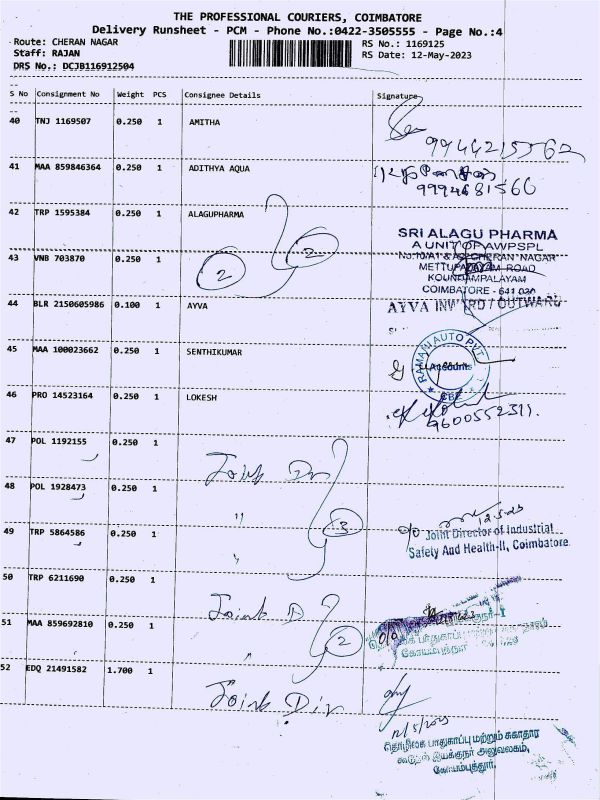 THE PROFESSIONAL COURIERS, COIMBATORE
Delivery Runsheet - PCM - Phone No.:0422-3505555 - Page No.:4
Route: CHERAN NAGAR RS No.: 1169125
Staff: RAJAN RS Date: 12-May-2023
DRS No.: DCJB116912504
S No Consignment No Weight PCS Consignee Details Signature
40 TNJ 1169507 0.250 1 AMITHA
9944215562
41 MAA 859846364 0.250 1 ADITHYA AQUA
9994681566
42 TRP 1595384 0.250 1 ALAGUPHARMA
SRI ALAGU PHARMA
A UNIT OF AWPSPL
43 VNB 703870 0.250 1
2 2
CHERAN NAGAR
METTUPALAYAM ROAD
KOUNDAMPALAYAM
COIMBATORE - 641 030
44 BLR 2150605986 0.100 1 AYVA
AYVA INWARD / OUTWARD
45 MAA 100023662 0.250 1 SENTHIKUMAR
RAMANI AUTO PVT.
Accounts
CBE
46 PRO 14523164 0.250 1 LOKESH
9600552311.
47 POL 1192155 0.250 1
Joint Dir
48 POL 1928473 0.250 1
"
3
12.5.23
49 TRP 5864586 0.250 1
"
Joint Director of Industrial
Safety And Health-II, Coimbatore.
50 TRP 6211690 0.250 1
Joint D
51 MAA 859692810 0.250 1
"
2
52 EDQ 21491582 1.700 1
Joint Dir
12/5/2023
தொழிலக பாதுகாப்பு மற்றும் சுகாதார
கூடுதல் இயக்குநர் அலுவலகம்,
கோயம்புத்தூர்.